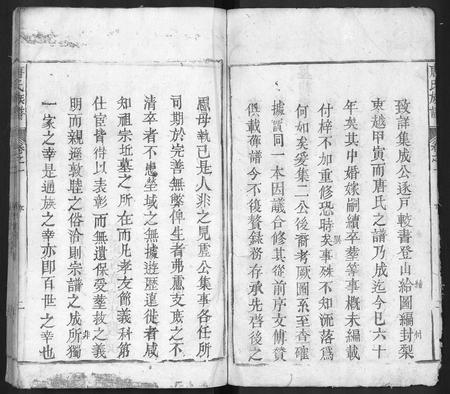 致詳集成公逐戶較書登山給圖編封梨
東越甲寅而唐氏之譜乃成迄今已六十
年矣其中婚嫁嗣續卒塟等事概未編載
付梓不加重修恐時異事殊不知流落爲
何如矣爰集二公後裔考厥圖系至眷確
據實同一本因議合修其從前序文傳贊
俱載舊譜今不復贅錄務存承先啓後之
愿毋執已是人非之見庶公集事各任所
司期於完善無獘俾生者弗蕙支庶之不
清卒者不患塋域之無據遊歷遠徙者咸
知祖宗坵墓之所在而凡孝友節義科第
仕宦皆得以表彰而無遺保受塟救之義
明而親遜敦睦之俗洽則宗譜之成所獨
一家之幸是通族之幸亦即百世之幸也
唐氏族譜 卷之一